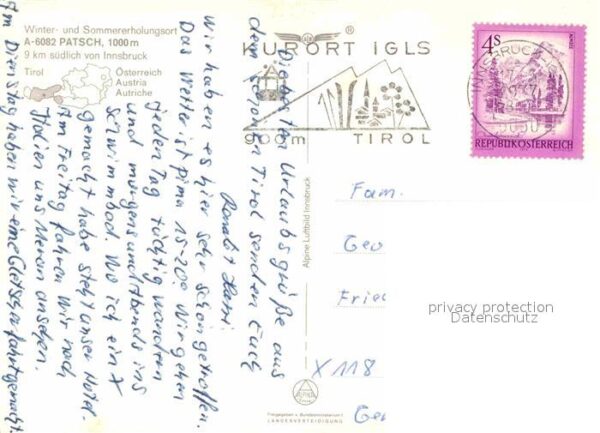 Winter- und Sommererholungsort
A-6082 PATSCH, 1000m
9 km südlich von Innsbruck
Tirol
Österreich
Austria
Autriche
KURORT IGLS
900m TIROL
4S
REPUBLIK ÖSTERREICH
INNSBRUCK
Die besten Urlaubsgrüße aus
dem schönen Tirol senden Euch
Wir haben es hier sehr schön getroffen.
Das Wetter ist prima 15-20°. Wir gehen
jeden Tag tüchtig wandern
und morgens und Abends ins
Schwimmbad. Wo ich ein X
gemacht habe steht unser Hotel.
Am Freitag fahren wir nach
Italien uns Meran ansehen.
Am Dienstag haben wir eine Gletscherfahrt gemacht
Alpine Luftbild Innsbruck
Fam.
Geo
Fried
X 118
Ger
privacy protection
Datenschutz
Freigegeben v. Bundesministerium f.
LANDESVERTEIDIGUNG